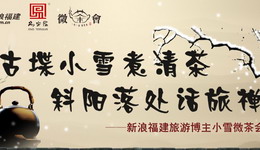 浪福建
微 會
古堞小雪煮清茶
斜阳落处话旅禅
——新浪福建旅游博主小雪微茶会